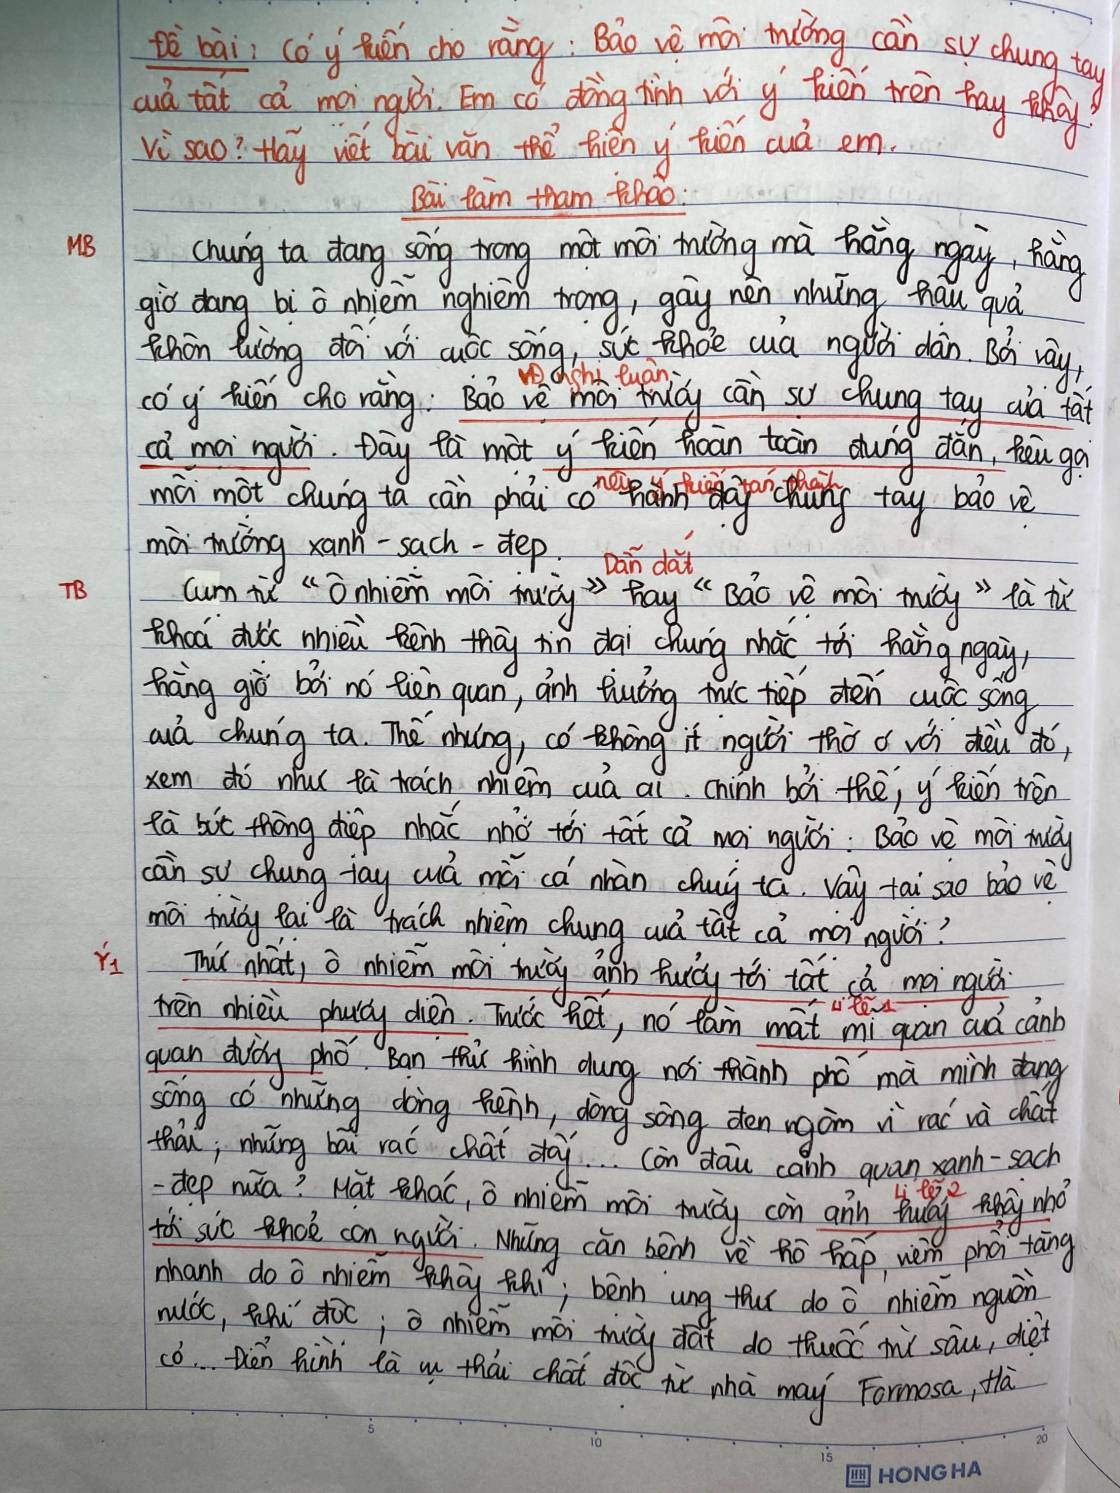 Đề bài: Có ý kiến cho rằng: Bảo vệ môi trường cần sự chung tay
của tất cả mọi người. Em có đồng tình với ý kiến trên hay không?
Vì sao? Hãy viết bài văn thể hiện ý kiến của em.
Bài làm tham khảo:
MB Chúng ta đang sống trong một môi trường mà hằng ngày, hằng
giờ đang bị ô nhiễm nghiêm trọng, gây nên những hậu quả
khôn lường đối với cuộc sống, sức khỏe của người dân. Bởi vậy,
VĐ nghị luận
có ý kiến cho rằng: Bảo vệ môi trường cần sự chung tay của tất
cả mọi người. Đây là một ý kiến hoàn toàn đúng đắn, kêu gọi
nêu ý kiến tán thành
mỗi một chúng ta cần phải có hành động chung tay bảo vệ
môi trường xanh - sạch - đẹp.
Dẫn dắt
TB Cụm từ "Ô nhiễm môi trường" hay "Bảo vệ môi trường" là từ
khoá được nhiều kênh thông tin đại chúng nhắc tới hằng ngày,
hằng giờ bởi nó liên quan, ảnh hưởng trực tiếp đến cuộc sống
của chúng ta. Thế nhưng, có không ít người thờ ơ với điều đó,
xem đó như là trách nhiệm của ai. Chính bởi thế, ý kiến trên
là bức thông điệp nhắc nhở tới tất cả mọi người: Bảo vệ môi trường
cần sự chung tay của mỗi cá nhân chúng ta. Vậy tại sao bảo vệ
môi trường lại là trách nhiệm chung của tất cả mọi người?
Ý1 Thứ nhất, ô nhiễm môi trường ảnh hưởng tới tất cả mọi người
trên nhiều phương diện. Trước hết, nó làm mất mĩ quan của cảnh
Lí lẽ 1
quan đường phố. Bạn thử hình dung nơi thành phố mà mình đang
sống có những dòng kênh, dòng sông đen ngòm vì rác và chất
thải; những bãi rác chất đống... Còn đâu cảnh quan xanh - sạch
- đẹp nữa? Mặt khác, ô nhiễm môi trường còn ảnh hưởng không nhỏ
Lí lẽ 2
tới sức khoẻ con người. Những căn bệnh về hô hấp, viêm phổi tăng
nhanh do ô nhiễm không khí; bệnh ung thư do ô nhiễm nguồn
nước, khí độc; ô nhiễm môi trường đất do thuốc trừ sâu, diệt
cỏ... Điển hình là vụ thải chất độc từ nhà máy Formosa, Hà
5 10 15 20
HH HONG HA